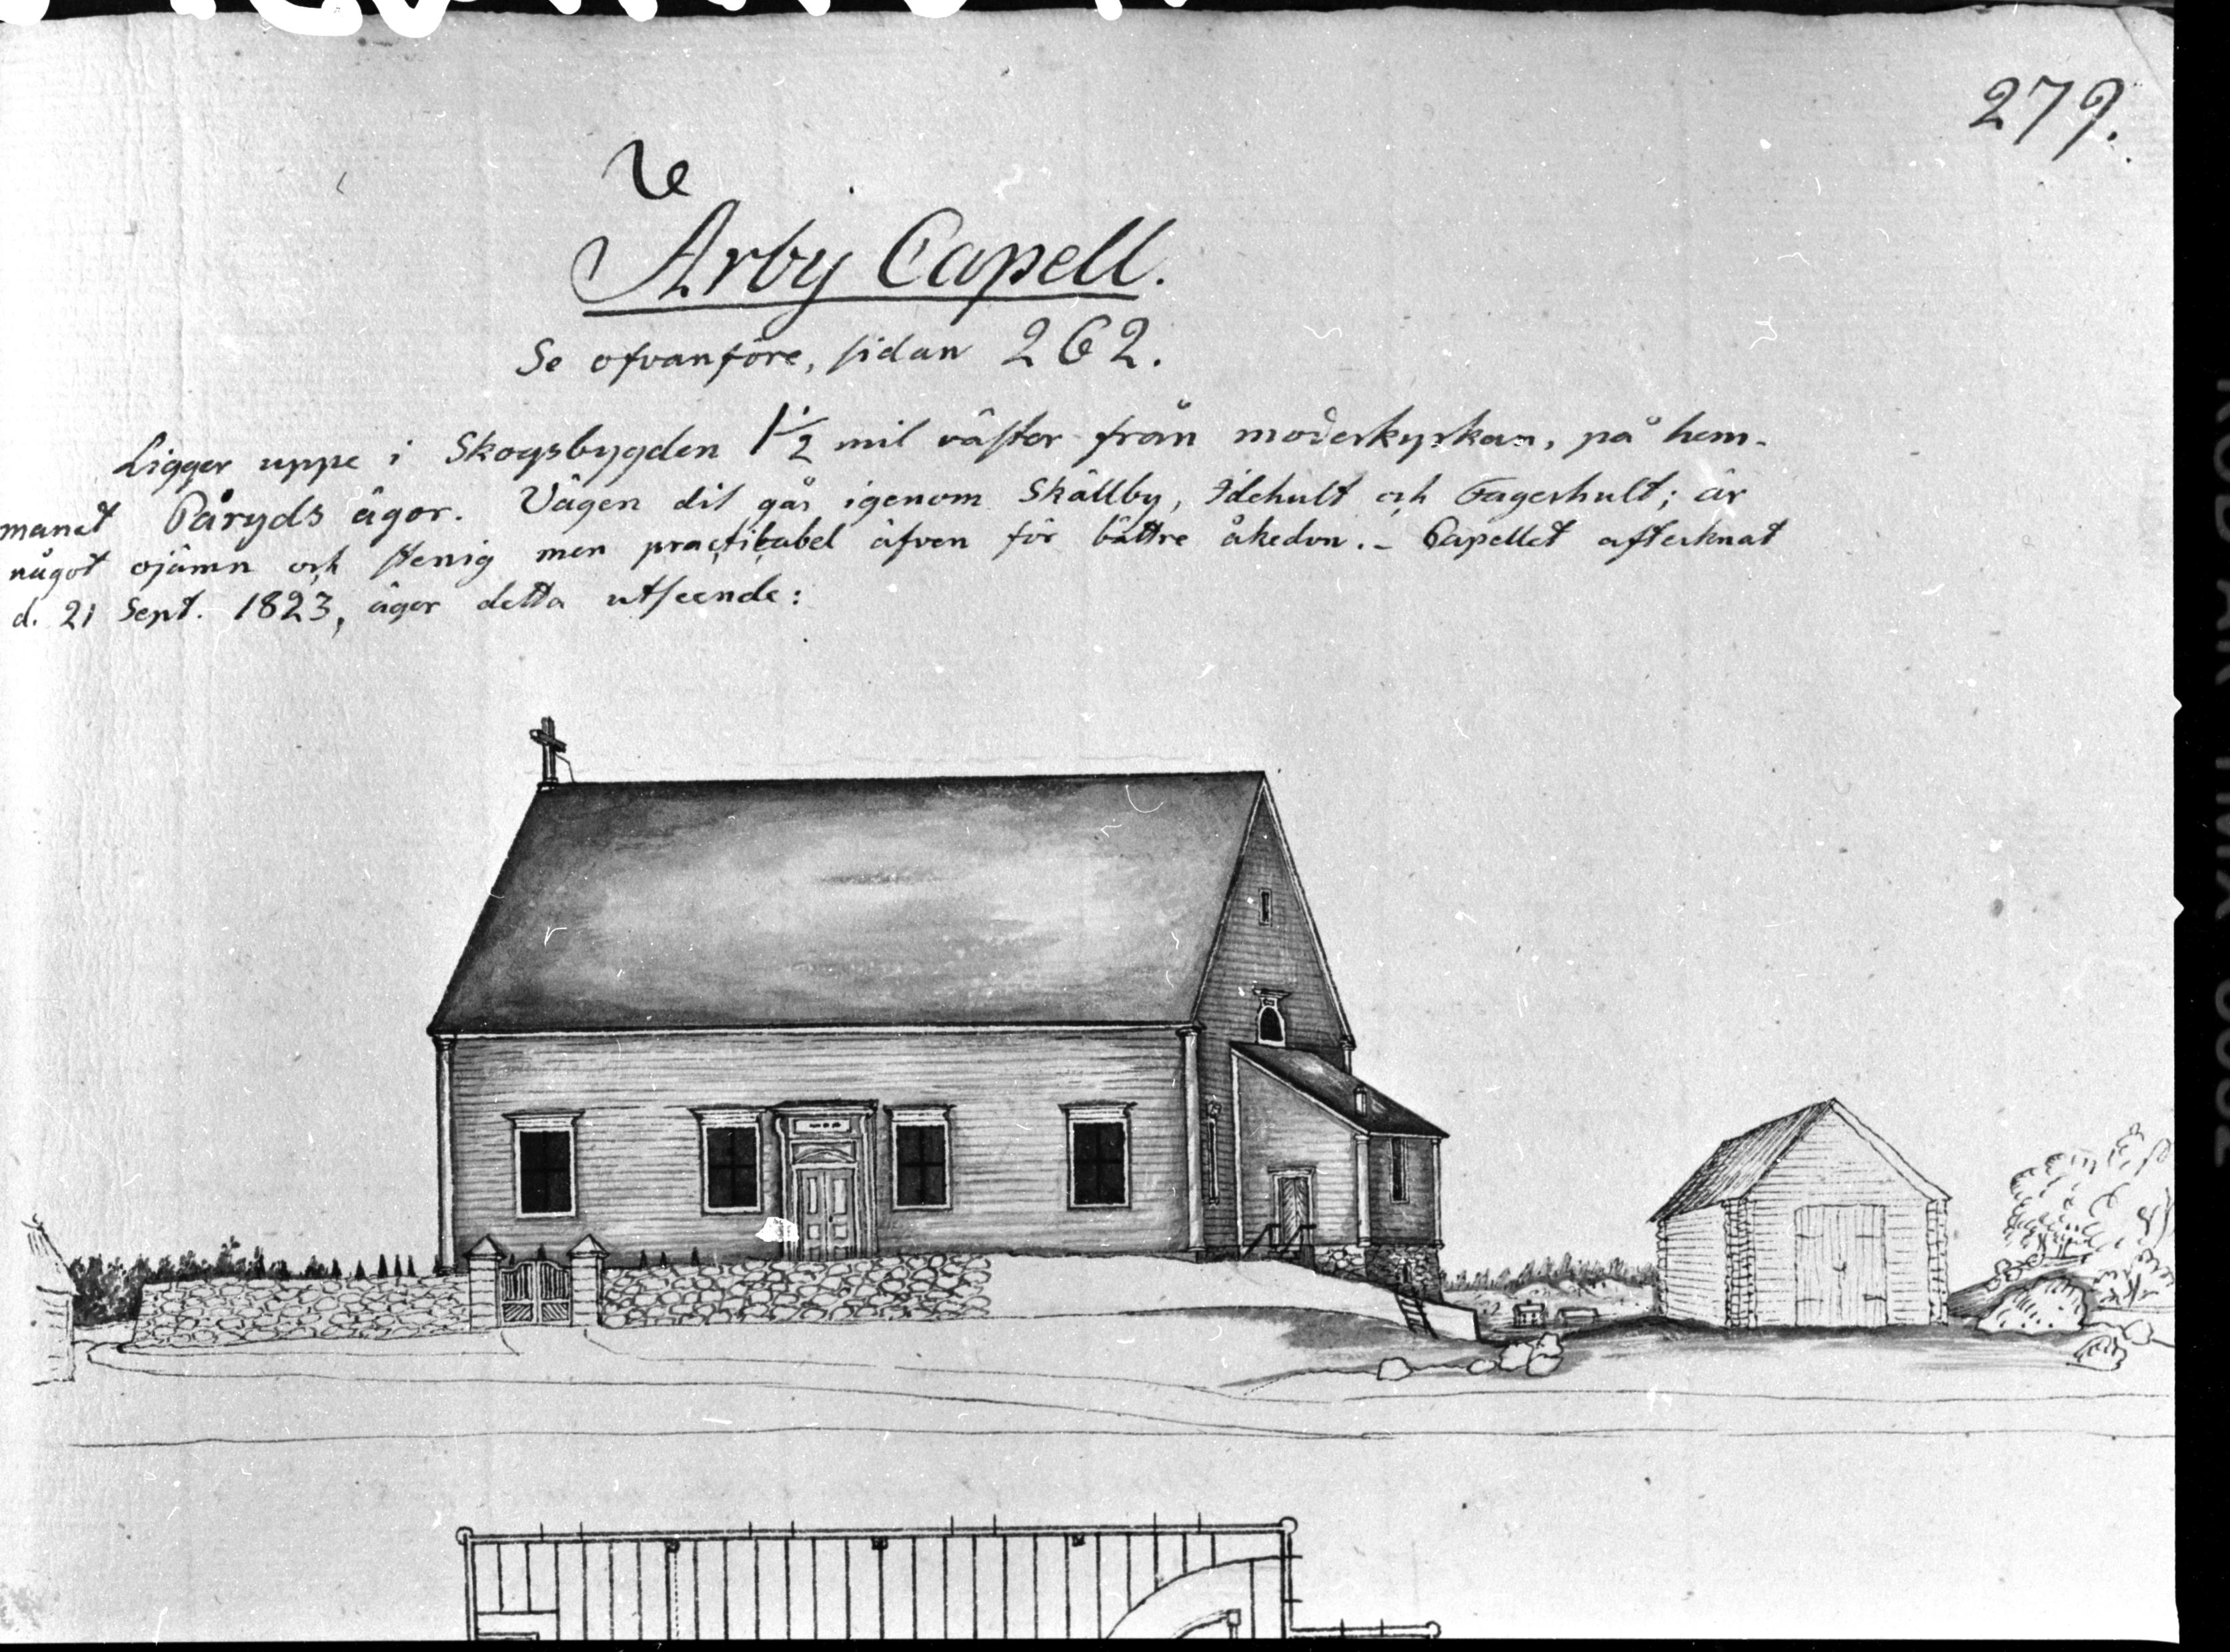 279.
Arby Capell.
Se ofvanföre, sidan 262.
Ligger uppe i Skogsbygden 1 1/2 mil väster från moderkyrkan, på hem-
manet Påryds ägor. Vägen dit går igenom Skällby, Idehult och Fagerhult; är
något ojämn och stenig men practicabel äfven för bättre åkedon. – Capellet afteknat
d. 21 Sept. 1823, äger detta utseende:
KODAK TMX 6052